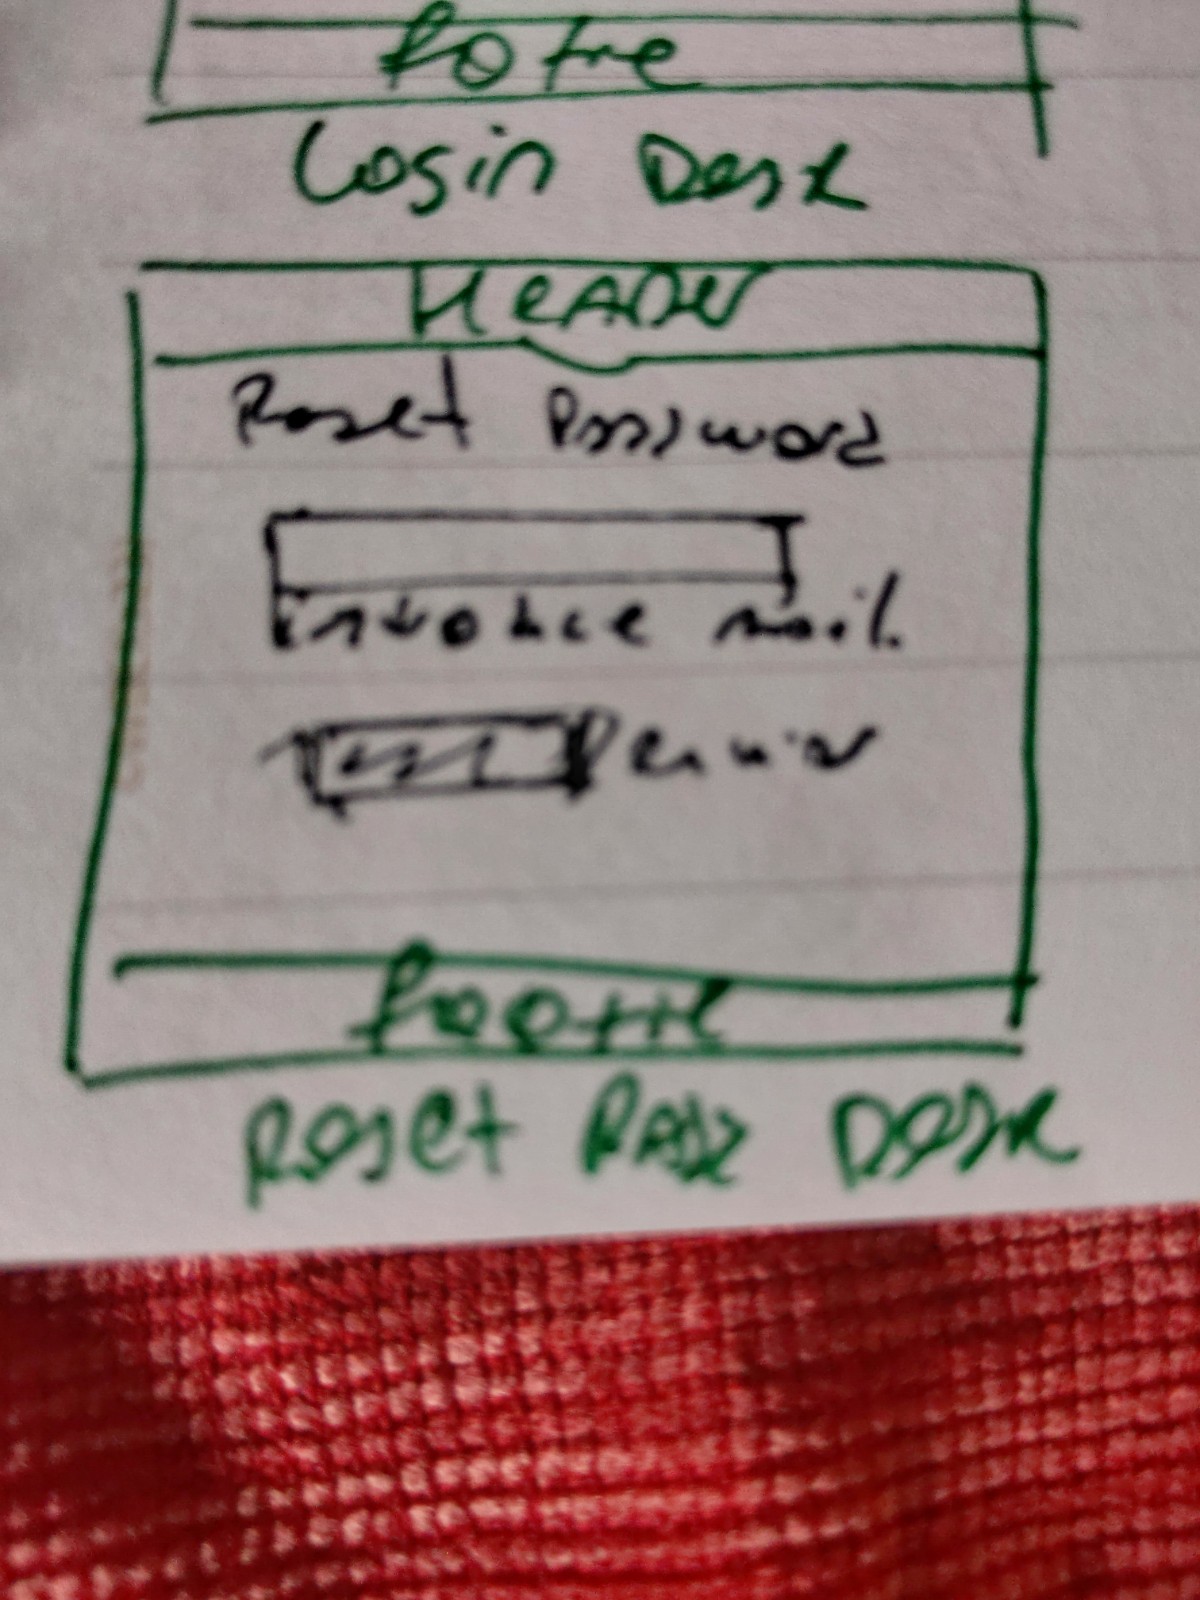 Footer
Login Desk
HEADER
Reset Password
introduce mail.
enviar
Footer
Reset Pass Desk